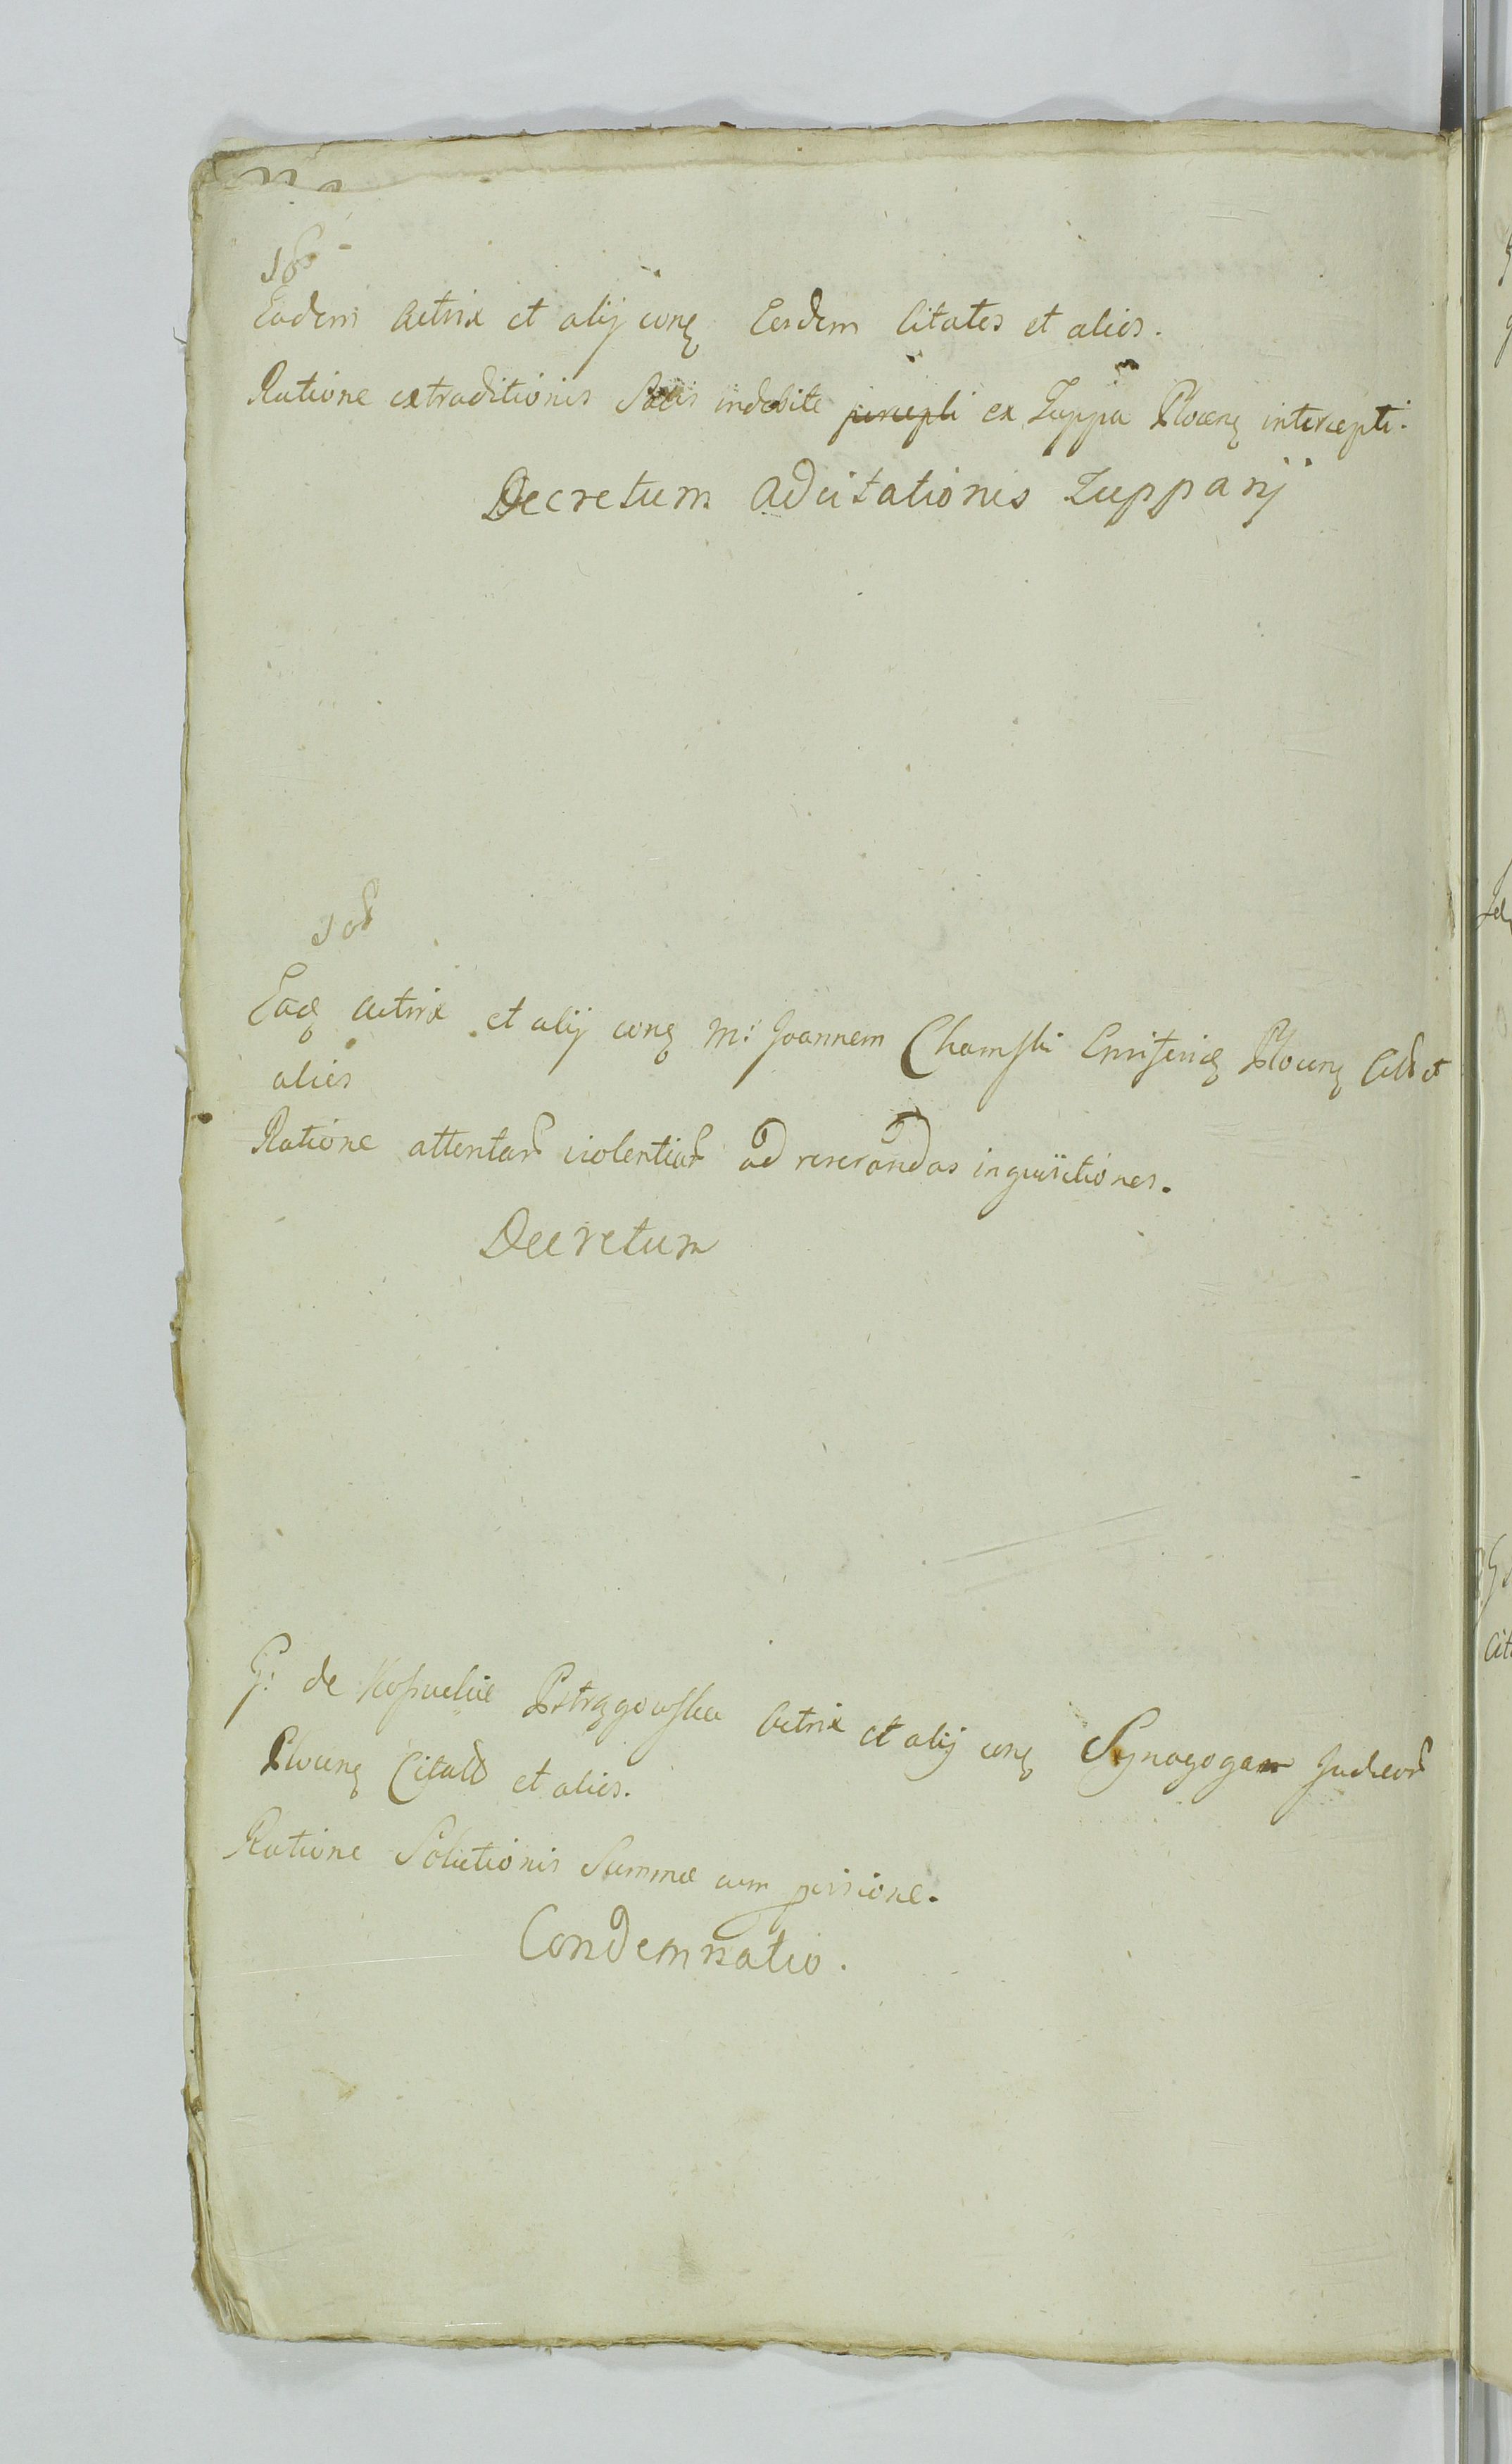 Eadem Actrix et alij conq Eosdem Citatos et alios.
Ratione extraditionis Salis indebite percepti ex Zuppa Plocenq intercepti.
Decretum Adcitationis Zupparij
Eadq Actrix et alij conq M: Joannem Chamski Plocenq et
alios
Ratione attentar violentiar ad reserandas inquisitiones.
Decretum
G: de Pstrągowska Actrix et alij conq Synagogam Judeor
Plocenq Citatd et alios.
Ratione Solutionis Summæ cum
Condemnatio.